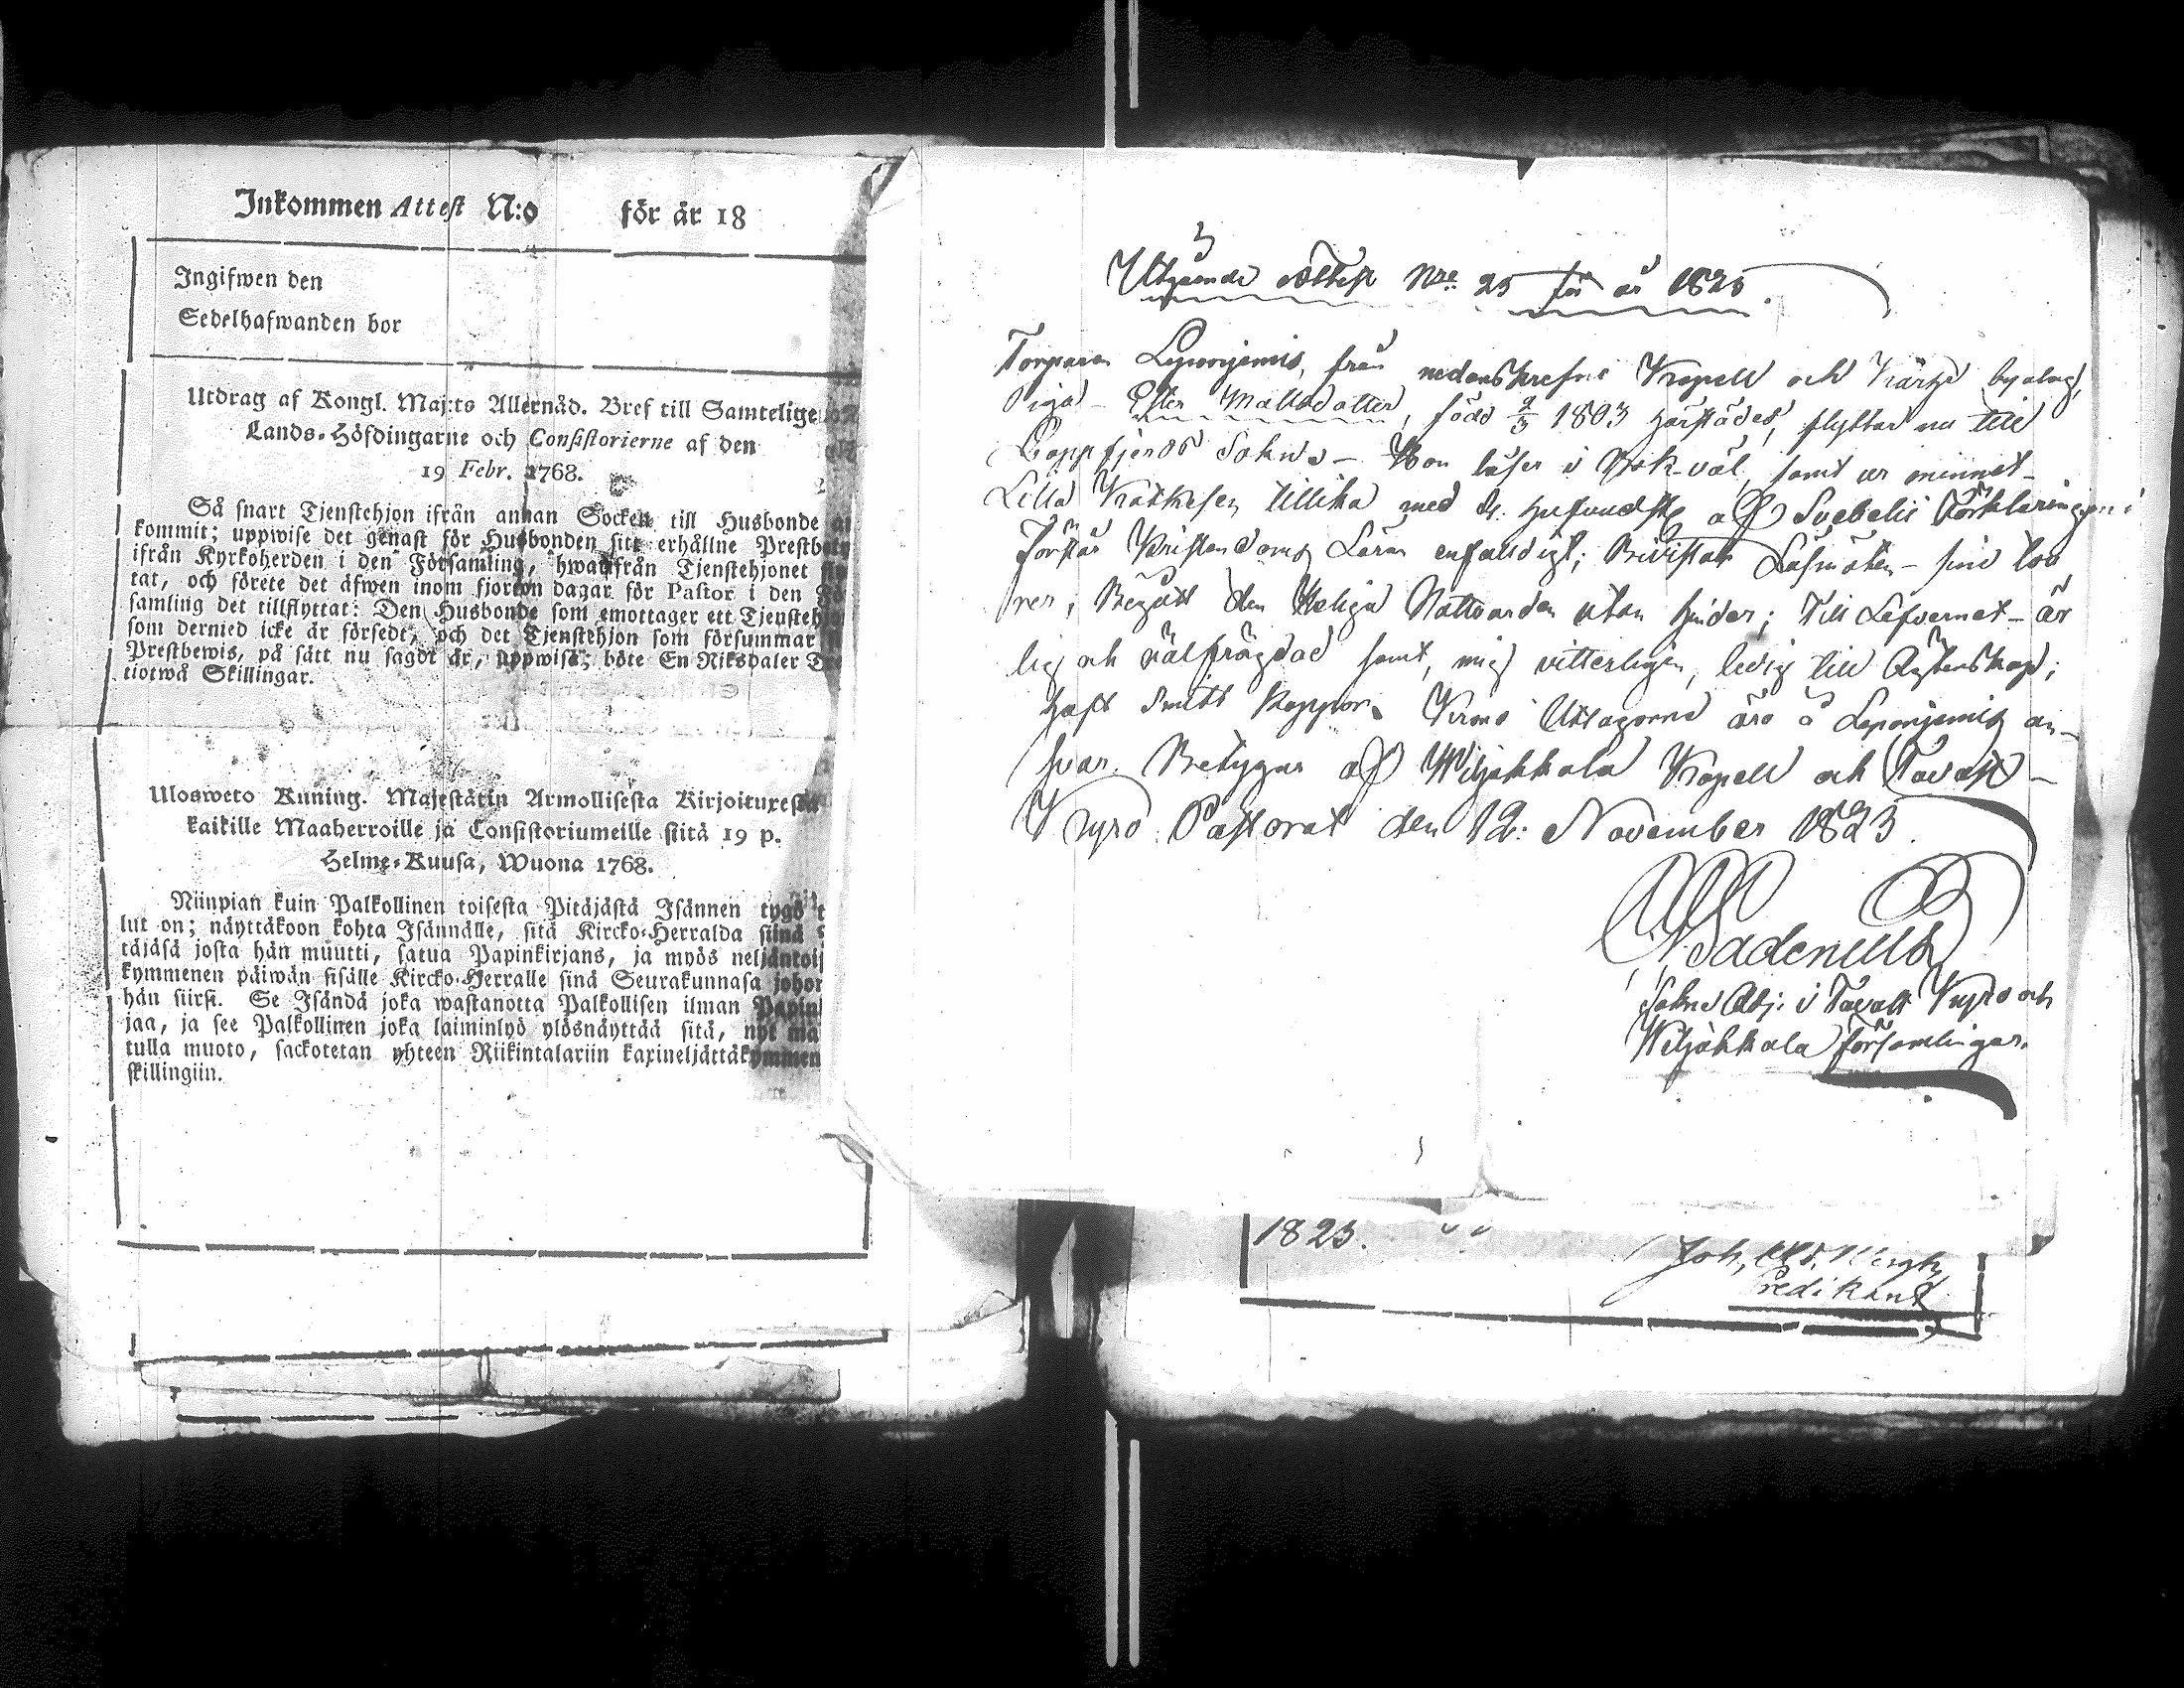 Inkommen Attest N:o för år 18
Ingifwen den
Sedelhafwanden bor
Utdrag af Kongl. Maj:ts Allernåd. Bref till Samtelige
Lands-Höfdingarne och Consistorierne af den
19 Febr. 1768.
Så snart Tjenstehjon ifrån annan Socken till Husbonde
kommit; uppwise det genast för Husbonden sitt erhållne
ifrån Kyrkoherden i den Församling, hwadfrån Tjenstehjonet
tat, och förete det äfwen inom fjorton dagar för Pastor i den
samling det tillflyttat: Den Husbonde som emottager ett
som dermed icke är försedt, och det Tjenstehjon som försummar
Prestbewis, på sätt nu sagdt är, uppwisa; böte En Riksdaler
tiotwå Skillingar.
Ulosweto Kuning. Majestätin Armollisesta
kaikille Maaherroille ja Consistoriumeille siitä 19 p.
Helme-Kuusa, Wuona 1768.
Niinpian kuin Palkollinen toisesta Pitäjästä Isännen tygö
lut on; näyttäkoon kohta Isännälle, sitä Kircko-Herralda siinä
täjäsä josta hän muutti, saatua Papinkirjans, ja myös
kymmenen päiwän sisälle Kircko-Herralle sinä Seurakunnasa
hän siirsi. Se Isändä joka wastanotta Palkollisen ilman
jaa, ja see Palkollinen joka laiminlyö ylösnäyttää sitä, nyt
tulla muoto, sackotetan yhteen Riikintalariin
skillingiin.
Utgående Attest Nro 25 för år 1823.
Torparen Leponjemis, från nedanskrefne Kapell och byalag,
Piga Ester Mattsdotter, född 1803 härstädes, flyttar nu till
Lappfjerds Sokn – Hon läser i bok väl, samt ur minnet
Lilla Katkesen tillika med af Svebelii Förklaringen;
Förstår Kristendoms Läran enfaldigt; Bivistat Läsmöten
Begått den Heliga Nattvarden utan hinder; Till Lefvernet är
lig och välfrägdad samt, mig vitterligen, ledig till Äktenskap;
haft Smitt Koppor. äro å Leponjemis an-
svar. Betygar af Wiljakkala Kapell och Tavast-
Kyro Pastorat den 12: November 1823.
Sokne Adj. i Tavast Kyro och
Wiljakkala församlingar.
1823.
Predikant